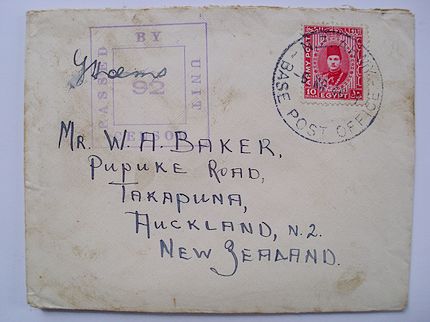 PASSED BY UNIT CENSOR
92
ARMY POST
10 EGYPT
BASE POST OFFICE
MR. W. A. BAKER,
PUPUKE ROAD,
TAKAPUNA,
AUCKLAND, N.Z.
NEW ZEALAND.